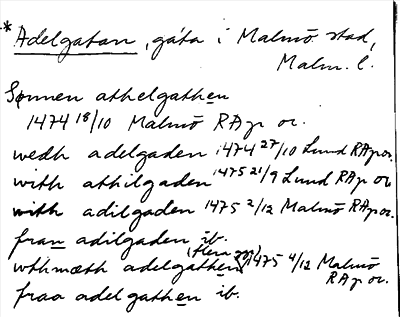 *Adelgatan, gata i Malmö stad,
Malm. l.
Sønnen athelgathen
1474 18/10 Malmö RAp or.
wedh adelgaden 1474 27/10 Lund RAp or.
with athilgaden 1475 21/9 Lund RAp or
with adilgaden 1475 2/12 Malmö RAp or.
fran adilgaden ib.
wthmæth adelgathen (flera ggr) 1475 4/12 Malmö
RAp or.
fraa adelgathen ib.